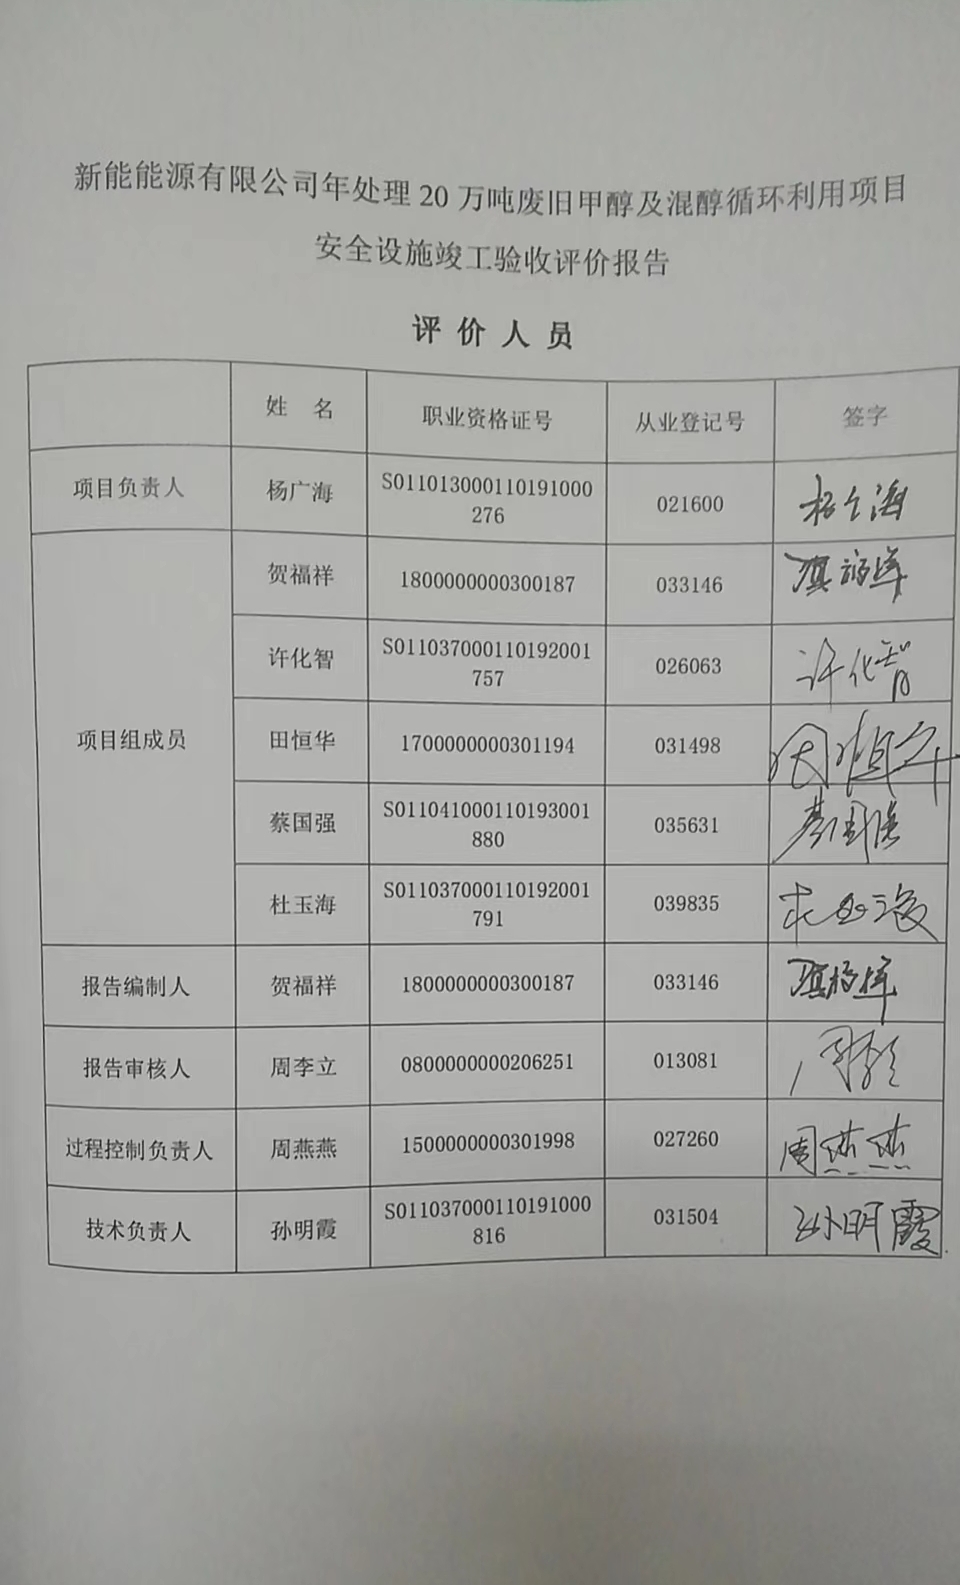 新能能源有限公司年处理 20 万吨废旧甲醇及混醇循环利用项目
安全设施竣工验收评价报告
评 价 人 员
姓 名 职业资格证号 从业登记号 签字
项目负责人 杨广海 S011013000110191000276 021600 杨广海
项目组成员
贺福祥 1800000000300187 033146
许化智 S011037000110192001757 026063 许化智
田恒华 1700000000301194 031498 田恒华
蔡国强 S011041000110193001880 035631 蔡国强
杜玉海 S011037000110192001791 039835 杜玉海
报告编制人 贺福祥 1800000000300187 033146
报告审核人 周李立 0800000000206251 013081 周李立
过程控制负责人 周燕燕 1500000000301998 027260
技术负责人 孙明霞 S011037000110191000816 031504 孙明霞